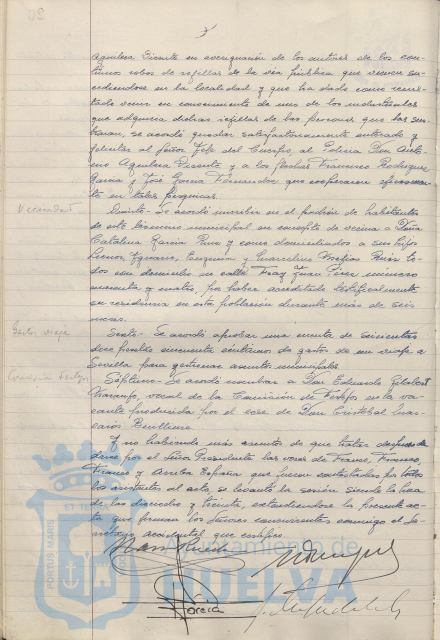 Aguilera Vicente en averiguación de los autores de los con-
tinuos robos de rejillas de la vía pública que vienen su-
cediendose en la localidad y que ha dado como resul-
tado venir en conocimiento de uno de los industriales
que adquiria dichas rejillas de las personas que las sus-
traian, se acordó quedar satisfactoriamente enterado y
felicitar al Señor Jefe del Cuerpo, al Policia Don Anto-
nio Aguilera Vicente y a los flechas Francisco Rodriguez
Garcia y José Garcia Fernandez que cooperaron
en tales pesquisas.
Vecindad
Quinto.- Se acordó inscribir en el padrón de habitantes
de este término municipal en concepto de vecina a Doña
Catalina y como domiciliados a sus hijos
Ignacio, Ezequiel y
dos con domicilio en calle Fray Juan Pérez número
cuarenta y cuatro, por haber acreditado testificalmente
su residencia en esta población durante más de seis
meses.
Gastos viaje
Sexto.- Se acordó aprobar una cuenta de seiscientas
doce pesetas cincuenta céntimos de gastos de un viaje a
Sevilla para gestionar asuntos municipales.
Comisión festejos
Séptimo.- Se acordó nombrar a Don Eduardo
Naranjo, vocal de la Comisión de Festejos en la va-
cante producida por el cese de Don Cristóbal
Y no habiendo más asuntos de que tratar despues de
darse por el Señor Presidente las voces de Franco, Franco,
Franco y Arriba España que fueron contestadas por todos
los asistentes al acto, se levantó la sesión siendo la hora
de las dieciocho y treinta, extendiendose la presente ac-
ta que firman los Señores concurrentes conmigo el Se-
cretario accidental que certifico.
Ayuntamiento de
HUELVA
PORTUS MARIS